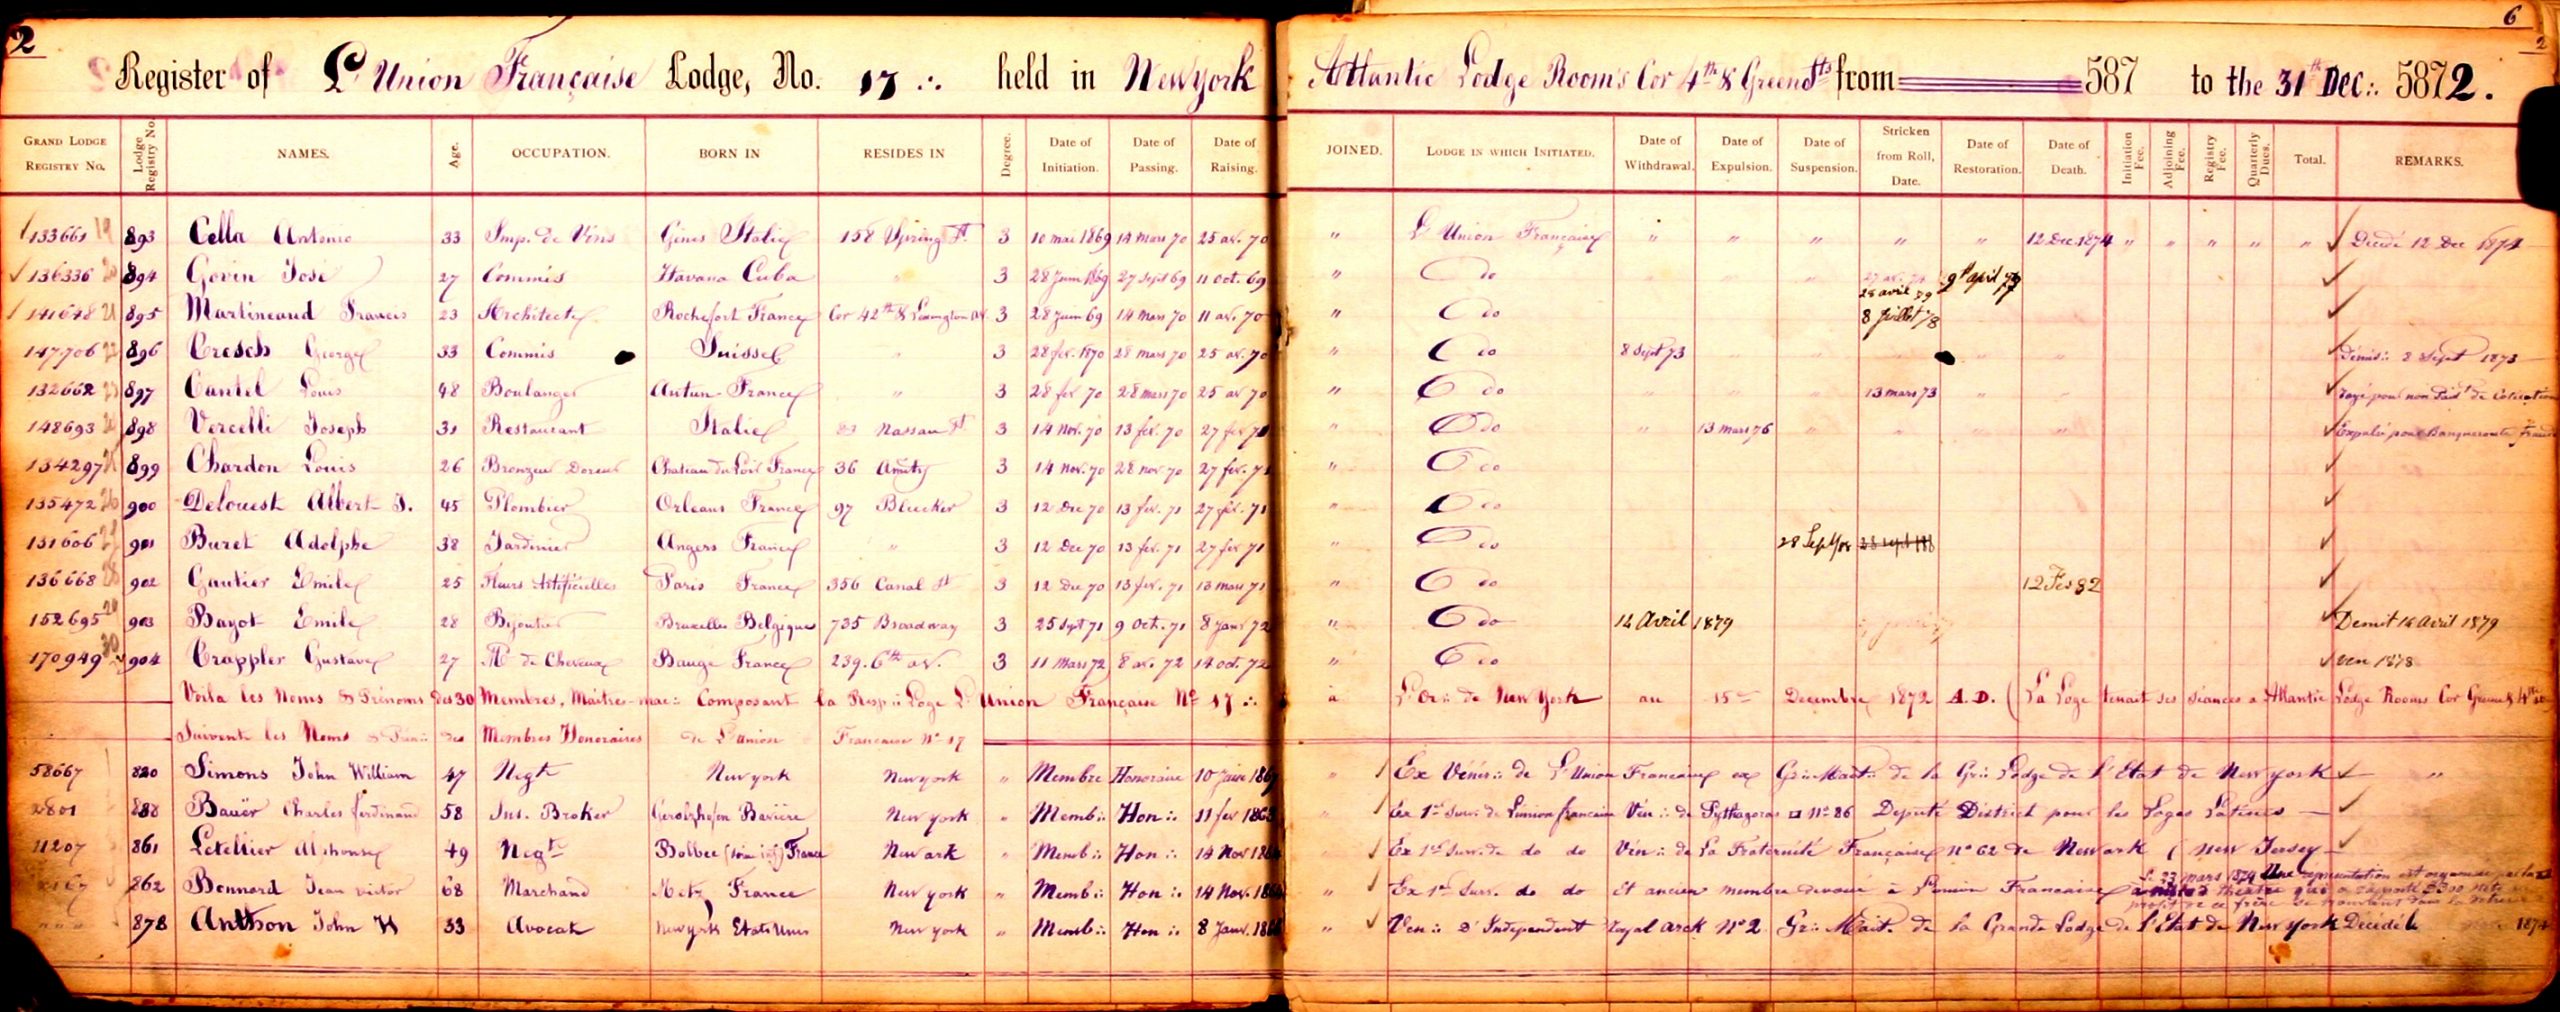 2
6
2
Register of L'Union Française Lodge, No. 17 ∴ held in New York Atlantic Lodge Rooms Cor 4th & Green Sts from 587 to the 31th Dec∴ 5872.
GRAND LODGE REGISTRY No. Lodge Registry No. NAMES. Age. OCCUPATION. BORN IN RESIDES IN Degree. Date of Initiation. Date of Passing. Date of Raising. JOINED. LODGE IN WHICH INITIATED. Date of Withdrawal. Date of Expulsion. Date of Suspension. Stricken from Roll, Date. Date of Restoration. Date of Death. Initiation Fee. Adjoining Fee. Registry Fee. Quarterly Dues. Total. REMARKS.
133661 19 893 Cella Antonio 33 Imp. de Vins Gènes Italie 158 Spring St 3 10 mai 1869 14 mars 70 25 av. 70 " L'Union Française " " " " " 12 Dec 1874 " " " " " Décédé 12 Dec 1874
136336 20 894 Govin José 27 Commis Havana Cuba " 3 28 Juin 1869 27 Sept 69 11 Oct. 69 " do 9th april 79
28 avril 79
141648 21 895 Martineaud Francis 23 Architecte Rochefort France Cor 42th & Lexington av. 3 28 Juin 69 14 Mars 70 11 av. 70 " do 8 Juillet 78
147706 22 896 Cresch George 33 Commis Suisse " 3 28 fev. 1870 28 mars 70 25 av. 70 " do 8 Sept 73 Démis∴ 8 Sept 1873
132662 23 897 Cantel Louis 48 Boulanger Autun France " 3 28 fev 70 28 mars 70 25 av 70 " do 13 mars 73 rayé pour non Paid de Cotisation
148693 898 Vercelli Joseph 31 Restaurant Italie 83 Nassau St 3 14 Nov. 70 13 fev. 70 27 fev 71 " do 13 mars 76 Expulsé pour Banqueroute Fraud
134297 899 Chardon Louis 26 Bronzeur Doreur Chateau du Loir France 36 Amity 3 14 Nov. 70 28 nov 70 27 fev. 71 " do
135472 26 900 Delouest Albert J. 45 Plombier Orleans France 97 Bleecker 3 12 Dec 70 13 fev. 71 27 fev. 71 " do
131606 901 Buret Adolphe 38 Jardinier Angers France " 3 12 Dec 70 13 fev. 71 27 fev 71 " do 28 Sept
136668 28 902 Gautier Emile 25 Fleurs Artificielles Paris France 356 Canal St 3 12 Dec 70 13 fev. 71 13 mars 71 " do 12 Fev 82
152695 29 903 Bayot Emile 28 Bijoutier Bruxelles Belgique 735 Broadway 3 25 Sept 71 9 Oct. 71 8 Janv 72 " do 14 Avril 1879 Demit 14 Avril 1879
170949 30 904 Crappler Gustave 27 Md de Cheveux Baugé France 239. 6th av. 3 11 Mars 72 8 av. 72 14 oct. 72 " do ven 1878
Voila les Noms & Prénoms des 30 Membres, Maitres-mac∴ Composant la Resp∴ Loge L'Union Française No 17 ∴ à L'Or∴ de New York au 15 Decembre 1872 A.D. (La Loge tenait ses séances a Atlantic Lodge Rooms Cor Green & 4th st
Suivent les Noms & Prén∴ des Membres Honoraires de L'union Française No 17
58667 820 Simons John William 47 Negt New york New york " Membre Honoraire 10 Janv 1867 " Ex Vénér∴ de L'Union Française ex Gr∴ Mait∴ de la Gr∴ Lodge de l'Etat de New york "
2801 Bauër Charles Ferdinand 58 Ins. Broker Gerolzhofen Bavière New york " Memb∴ Hon∴ 11 fev 1863 " Ex 1er Surv∴ de L'union française Vén∴ de Pythagoras No 86 Député District pour les Loges Latines
11207 861 Letellier Alphonse 49 Negt Bolbec (Seine inf) France Newark " Memb∴ Hon∴ 14 Nov " Ex 1er Surv. de do do Vén∴ de La Fraternité Française No 62 de Newark (New Jersey
862 Bonnard Jean Victor 68 Marchand Metz France New york " Memb∴ Hon∴ 14 Nov. " Ex 1er Surv. do do Et ancien membre devoué à L'union Française
Le 23 mars 1879 Une représentation est organisée
théatre qui a rapporté $300 nets
profit de ce frère se trouvant dans la
878 Anthon John H 33 Avocat New york Etats Unis New york " Memb∴ Hon∴ 8 Janv. " Ven∴ D'Independent Royal Arch No 2 Gr∴ Mait. de la Grande Lodge de l'Etat de New york Décédé le 1874